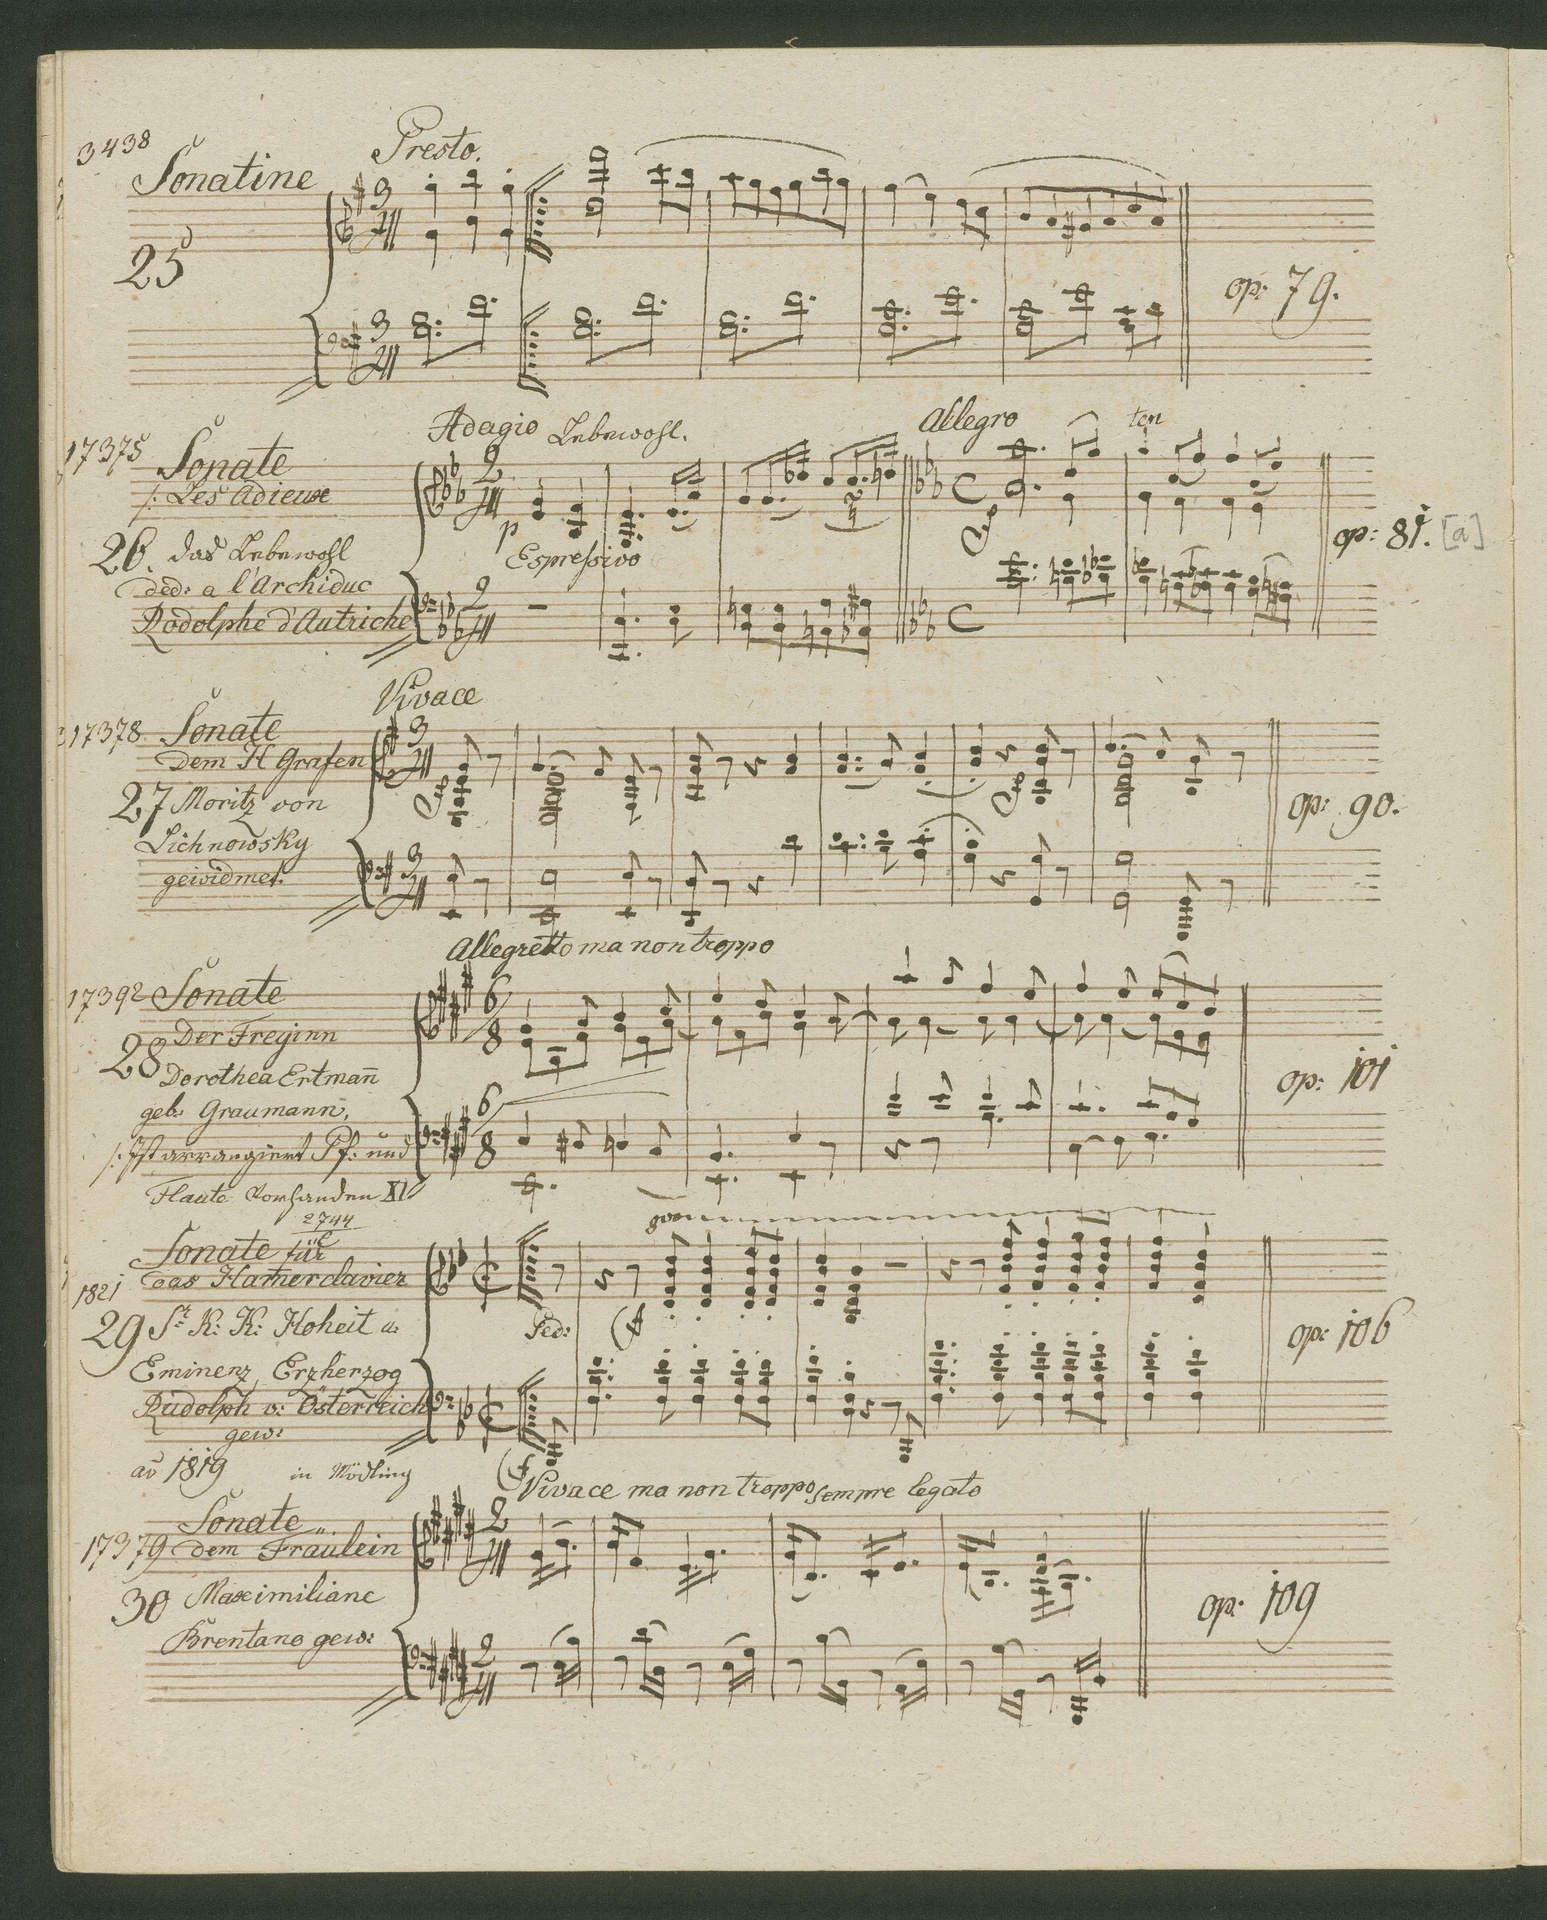 3438
Presto.
Sonatine
25
op: 79.
17375
Adagio Lebewohl.
Allegro
ten
Sonate
/: Les Adieux
26. das Lebewohl
p
Espressivo
ded: a l'Archiduc
Rodolphe d'Autriche
op: 81. [a]
Vivace
17378 Sonate
dem H Grafen
27 Moritz von
Lichnowsky
gewidmet.
op: 90.
Allegretto ma non troppo
17392 Sonate
Der Freyinn
28
Dorothea Ertmañ
geb: Graumann.
/: Ist arrangiert Pf: und
Flaute Vorhanden XI
2744
op: 101
8va
Sonate für
das Ham̄erclavier
1821
29 Sr K: K: Hoheit u:
Ped:
Eminenz, Erzherzog
Rudolph v: Österreich
gew:
ao 1819 in Mödling
op: 106
Vivace ma non troppo sempre legato
Sonate
17379 dem Fräulein
30 Maximiliane
Brentano gew:
op: 109